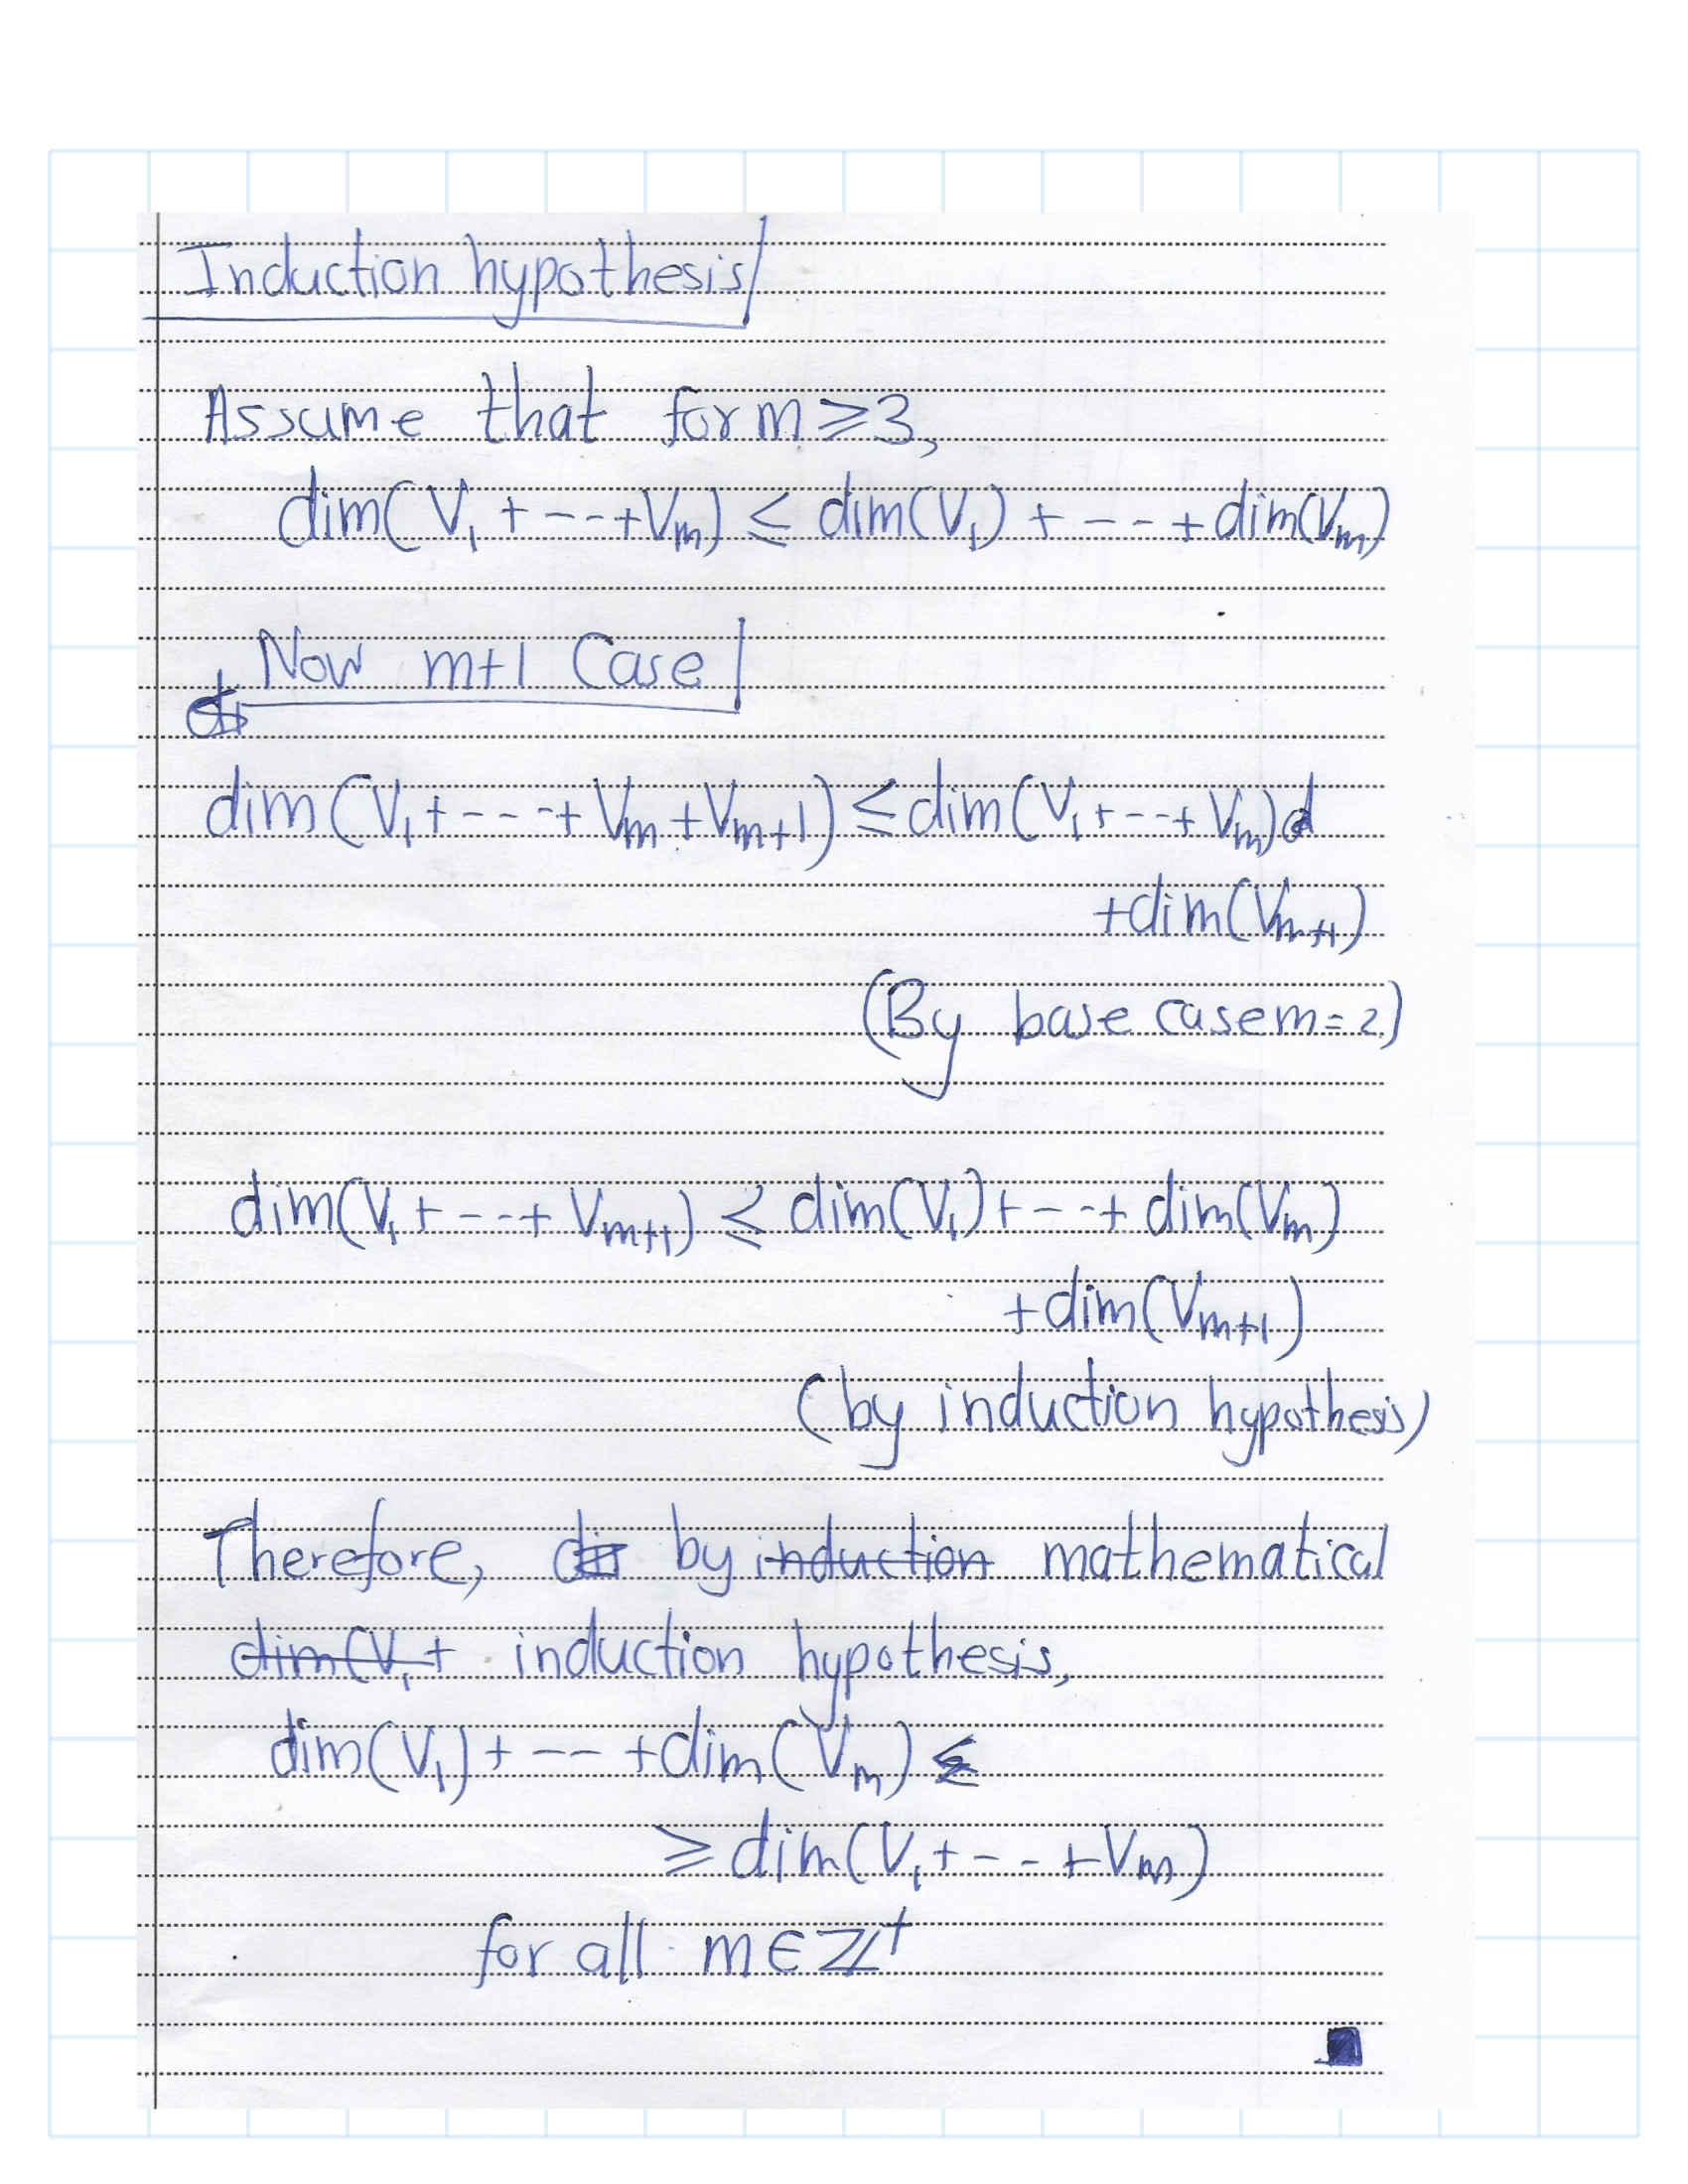 Induction hypothesis
Assume that for m ≥ 3,
dim(V₁ + --- + Vₘ) ≤ dim(V₁) + --- + dim(Vₘ)
Now m+1 Case
dim(V₁ + --- + Vₘ + Vₘ₊₁) ≤ dim(V₁ + --- + Vₘ)
+ dim(Vₘ₊₁)
(By base case m = 2)
dim(V₁ + --- + Vₘ₊₁) ≤ dim(V₁) + --- + dim(Vₘ)
+ dim(Vₘ₊₁)
(by induction hypothesis)
Therefore, by induction mathematical
dim(V₁ + induction hypothesis,
dim(V₁) + --- + dim(Vₘ) ≤
≥ dim(V₁ + --- + Vₘ)
for all m ∈ ℤ⁺